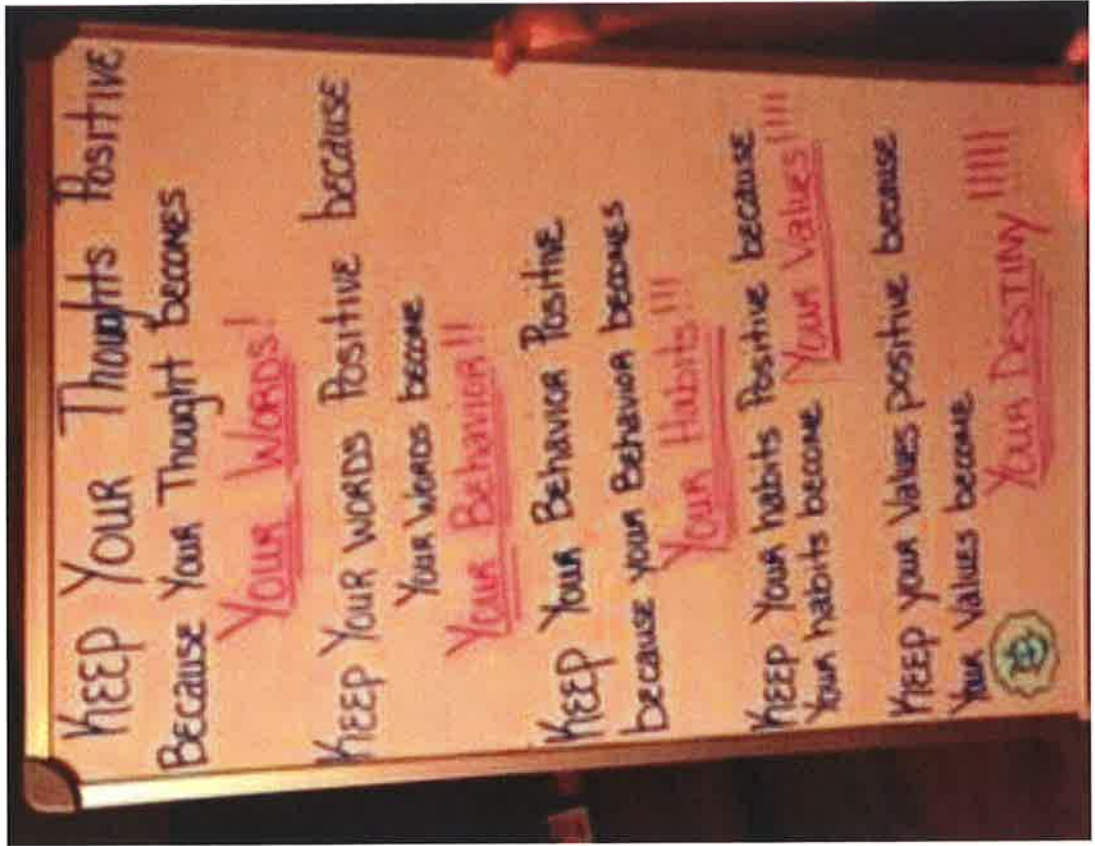 KEEP YOUR Thoughts Positive
Because Your Thought becomes
Your Words!
KEEP YOUR WORDS Positive because
Your Words become
Your Behavior!!
KEEP Your Behavior Positive
because your Behavior becomes
Your Habits!!!
KEEP Your habits Positive because
Your habits become Your Values!!!!
KEEP your Values positive because
Your Values become
Your DESTINY !!!!!